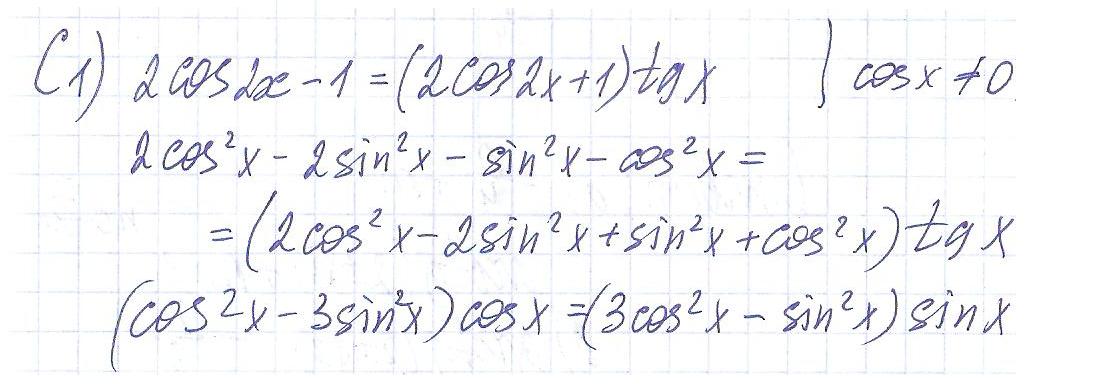 C1) 2cos2x - 1 = (2cos2x + 1) tg x | cos x ≠ 0
2cos²x - 2sin²x - sin²x - cos²x =
= (2cos²x - 2sin²x + sin²x + cos²x) tg x
(cos²x - 3sin²x) cos x = (3cos²x - sin²x) sin x